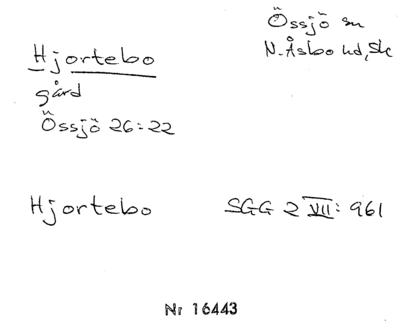 Össjö sn
N. Åsbo hd, Sk
Hjortebo
gård
Össjö 26:22
Hjortebo SGG 2 VII: 961
Nr 16443